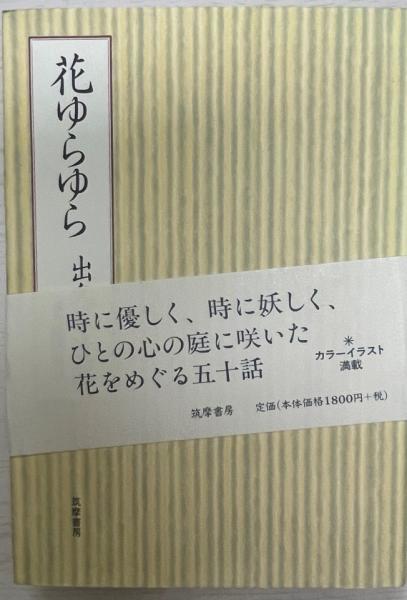 花ゆらゆら 出
時に優しく、時に妖しく、
ひとの心の庭に咲いた
花をめぐる五十話
＊
カラーイラスト
満載
筑摩書房 定価(本体価格1800円+税)
筑摩書房